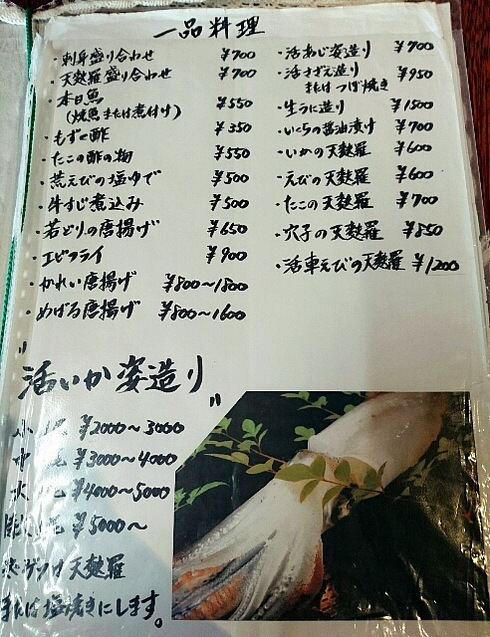 一品料理
・刺身盛り合わせ ¥700
・天麩羅盛り合わせ ¥700
・本日魚 ¥550
(焼魚または煮付け)
・もずく酢 ¥350
・たこの酢の物 ¥550
・荒えびの塩ゆで ¥500
・牛すじ煮込み ¥500
・若どりの唐揚げ ¥650
・エビフライ ¥900
・かれい唐揚げ ¥800～1800
・めばる唐揚げ ¥800～1600
・活あじ姿造り ¥700
・活さざえ造り ¥950
またはつぼ焼き
・生うに造り ¥1500
・いくらの醤油漬け ¥700
・いかの天麩羅 ¥600
・えびの天麩羅 ¥600
・たこの天麩羅 ¥700
・穴子の天麩羅 ¥850
・活車えびの天麩羅 ¥1200
"活いか姿造り"
小 ¥2000～3000
中 ¥3000～4000
大 ¥4000～5000
¥5000～
天麩羅
または塩焼きにします。